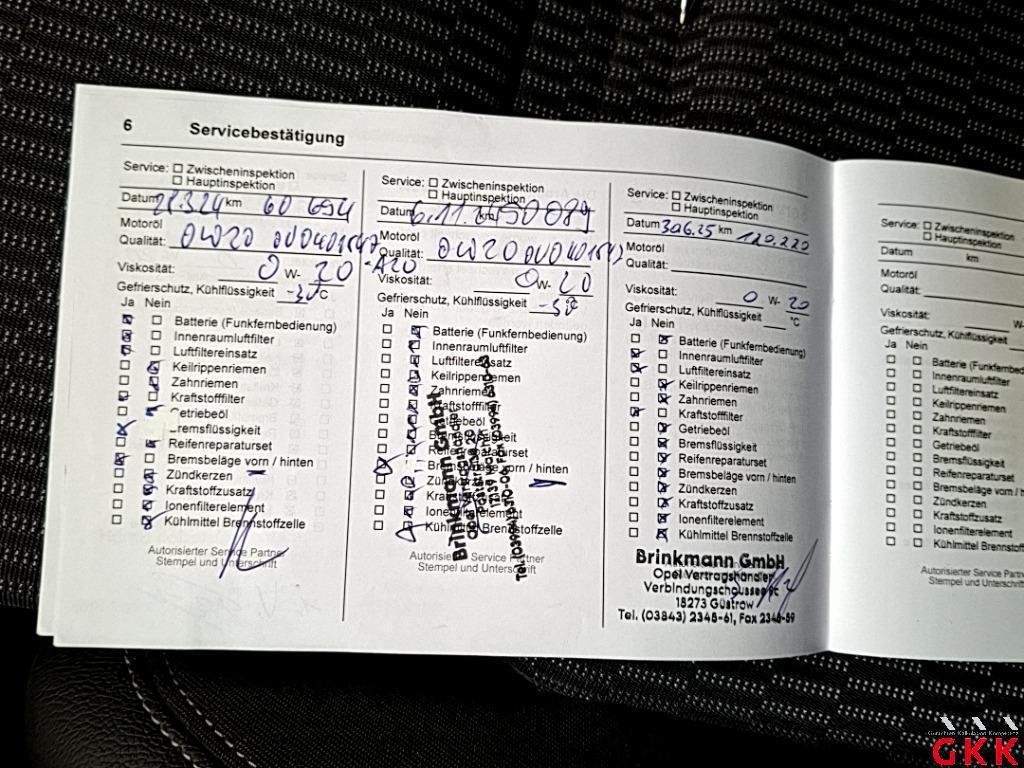 6 Servicebestätigung
Service: Zwischeninspektion
Hauptinspektion
Datum km
Motoröl
Qualität: 0W20 0V0401547
-A20
Viskosität: 0 W- 20
Gefrierschutz, Kühlflüssigkeit °C
Ja Nein
Batterie (Funkfernbedienung)
Innenraumluftfilter
Luftfiltereinsatz
Keilrippenriemen
Zahnriemen
Kraftstofffilter
Getriebeöl
Bremsflüssigkeit
Reifenreparaturset
Bremsbeläge vorn / hinten
Zündkerzen
Kraftstoffzusatz
Ionenfilterelement
Kühlmittel Brennstoffzelle
Autorisierter Service Partner
Stempel und Unterschrift
Service: Zwischeninspektion
Hauptinspektion
Datum 6.11. km
Motoröl
Qualität: 0W20
Viskosität: 0 W- 20
Gefrierschutz, Kühlflüssigkeit
Ja Nein
Batterie (Funkfernbedienung)
Innenraumluftfilter
Luftfiltereinsatz
Keilrippenriemen
Zahnriemen
Kraftstofffilter
Bremsbeläge vorn / hinten
Ionenfilterelement
Kühlmittel Brennstoffzelle
Autorisierter Service Partner
Stempel und Unterschrift
Brinkmann GmbH
Service: Zwischeninspektion
Hauptinspektion
Datum 30.6.25 km 120.220
Motoröl
Qualität:
Viskosität: 0 W- 20
Gefrierschutz, Kühlflüssigkeit °C
Ja Nein
Batterie (Funkfernbedienung)
Innenraumluftfilter
Luftfiltereinsatz
Keilrippenriemen
Zahnriemen
Kraftstofffilter
Getriebeöl
Bremsflüssigkeit
Reifenreparaturset
Bremsbeläge vorn / hinten
Zündkerzen
Kraftstoffzusatz
Ionenfilterelement
Kühlmittel Brennstoffzelle
Brinkmann GmbH
Opel Vertragshändler
Verbindungschaussee
18273 Güstrow
Tel. (03843) 2348-61, Fax 2348-59
Service: Zwischeninspektion
Hauptinspektion
Datum km
Motoröl
Qualität:
Viskosität:
Gefrierschutz, Kühlflüssigkeit
Ja Nein
Batterie (Funkfernbedien
Innenraumluftfilter
Luftfiltereinsatz
Keilrippenriemen
Zahnriemen
Kraftstofffilter
Getriebeöl
Bremsflüssigkeit
Reifenreparaturset
Bremsbeläge vorn / hin
Zündkerzen
Kraftstoffzusatz
Ionenfilterelement
Kühlmittel Brennstoff
Autorisierter Service Partn
Stempel und Unterschrift
GKK